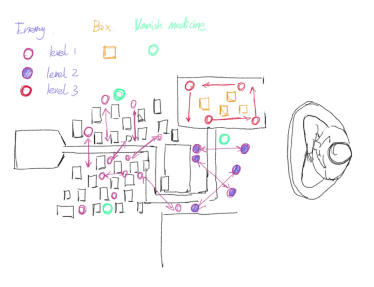 Enemy Box Vanish medicine
level 1
level 2
level 3